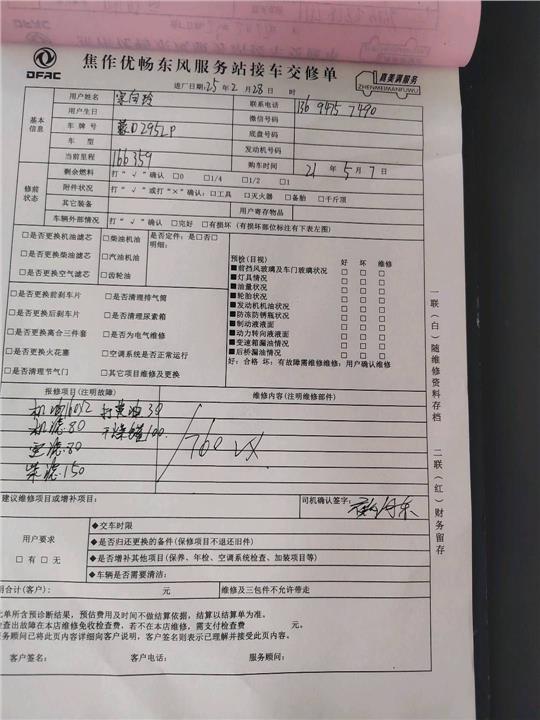 DFAC
焦作优畅东风服务站接车交修单
真美满服务
ZHENMEIMANFUWU
进厂日期:25年 2月 28日 时
基本信息
用户姓名
联系电话 136 9475 7490
用户生日 微信号码
车 牌 号 底盘号码
车 型 发动机号码
当前里程 166359 购车时间 21 年 5 月 7 日
修前状态
剩余燃料 打“√”确认 □0 □1/4 □1/2 □1
附件状况 打“√”或打“×”确认:□工具 □灭火器 □备胎 □千斤顶
其它装备 用户寄存物品
车辆外部情况 打“√”确认 □完好 □有损坏(有损坏部位标注有下表左图)
□是否更换机油滤芯 □柴油机油 是否定件:是□否□
明细:
□是否更换柴油滤芯 □汽油机油
□是否更换空气滤芯 □齿轮油
□是否更换前刹车片 □是否清理排气筒
□是否更换后刹车片 □是否清理尿素箱
□是否更换离合三件套 □是否为电气维修
□是否更换火花塞 □空调系统是否正常运行
□是否清理节气门 □其它项目维修及更换
预检(目视) 好 坏 维修
■前挡风玻璃及车门玻璃状况 □ □ □
■灯具情况 □ □ □
■油量状况 □ □ □
■轮胎状况 □ □ □
■发动机机油状况 □ □ □
■防冻防锈瓶状况 □ □ □
■制动液液面 □ □ □
■动力转向液液面 □ □ □
■变速箱漏油情况 □ □ □
■后桥漏油情况 □ □ □
好:合格 坏:有故障需维修维用:用户确认维修
报修项目(注明故障) 维修内容(注明维修部件)
机油 打黄油 30
机滤.80 干燥罐100.
空滤.80
柴滤.150
760 VX
建议维修项目或增补项目: 司机确认签字:
用户要求
□ 有 □ 无
◆交车时限
◆是否归还更换的备件(保修项目不退还旧件)
◆是否增补其他项目(保养、年检、空调系统检查、加装项目等)
◆车辆是否需要清洁:
用合计(客户): 元 维修及三包件不允许带走
此单所含预诊断结果,预估费用及时间不做结算依据,结算以结算单为准。
检查出故障在本店维修免收检查费,若不在本店维修,需支付检查费 元。
服务顾问已将此页内容详细向客户说明,客户签名则表示已理解并接受此页内容。
客户签名: 客户电话: 服务顾问:
一联(白)随维修资料存档
二联(红)财务留存